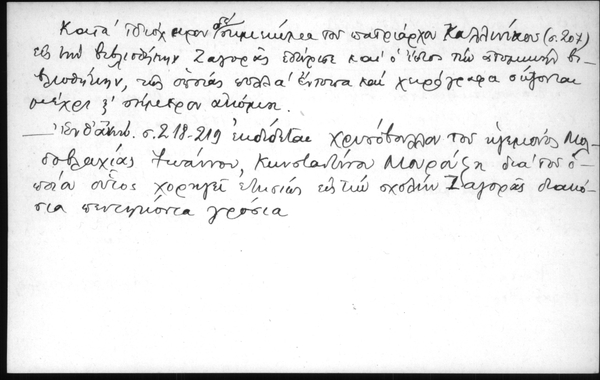 Κατὰ ἰδιόχειρον σημείωμα του πατριάρχου Καλλινίκου (σ. 207)
εις την βιβλιοθήκην Ζαγοράς εδώρισε και ὁ ίδιος την ατομικήν βι-
βλιοθήκην, της οποίας πολλά έντυπα και χειρόγραφα σώζονται
μέχρι σήμερον ακόμη.
σ. 218-219 εκδίδεται χρυσόβουλλον του ηγεμόνος Μολ-
δοβλαχίας Ἰωάννου, Κωνσταντίνου Μουρούζη δια του ὁ-
ποίου οὗτος χορηγεί ετησίως εις την σχολήν Ζαγοράς διακό-
σια πεντήκοντα γρόσια